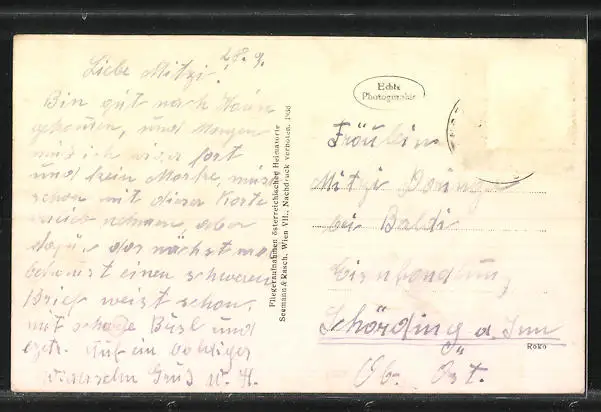 28. 9.
Liebe Mitzi!
Bin gut nach Hause
gekommen, und morgen
muß ich wieder fort
und kein Marke, mußt
schon mit dieser Karte
nehmen, aber
dafür das nächst mal
bekommst einen schweren
Brief weißt schon.
mit Büsl und
Auf ein baldiges
Wiedersehn Gruß
Fliegeraufnahmen österreichischer Heimatorte
Seemann & Rasch, Wien VII., Nachdruck verboten. 1938
Echte
Photographie
Fräulein
Mitzi
bei
Eisenhandlung
Schärding a. Inn
Ob. Öst.
Roko